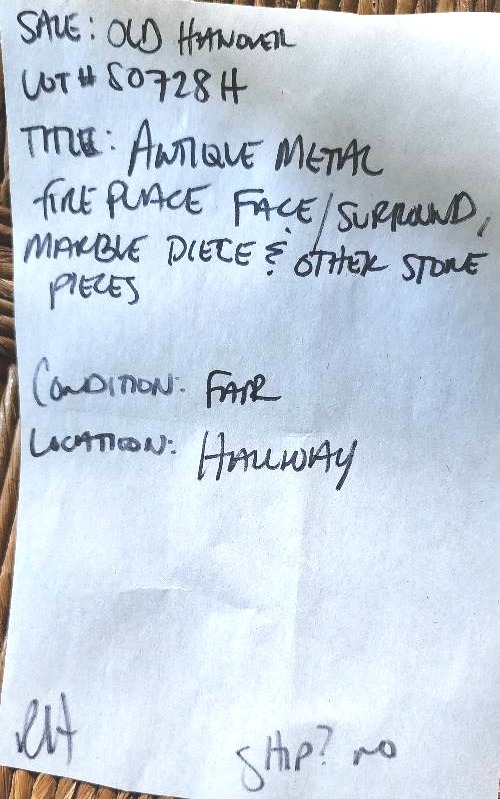 SALE: OLD HANOVER
LOT # 50728H
TITLE: ANTIQUE METAL
FIREPLACE FACE/SURROUND,
MARBLE PIECE & OTHER STONE
PIECES
CONDITION: FAIR
LOCATION: HALLWAY
SHIP? NO